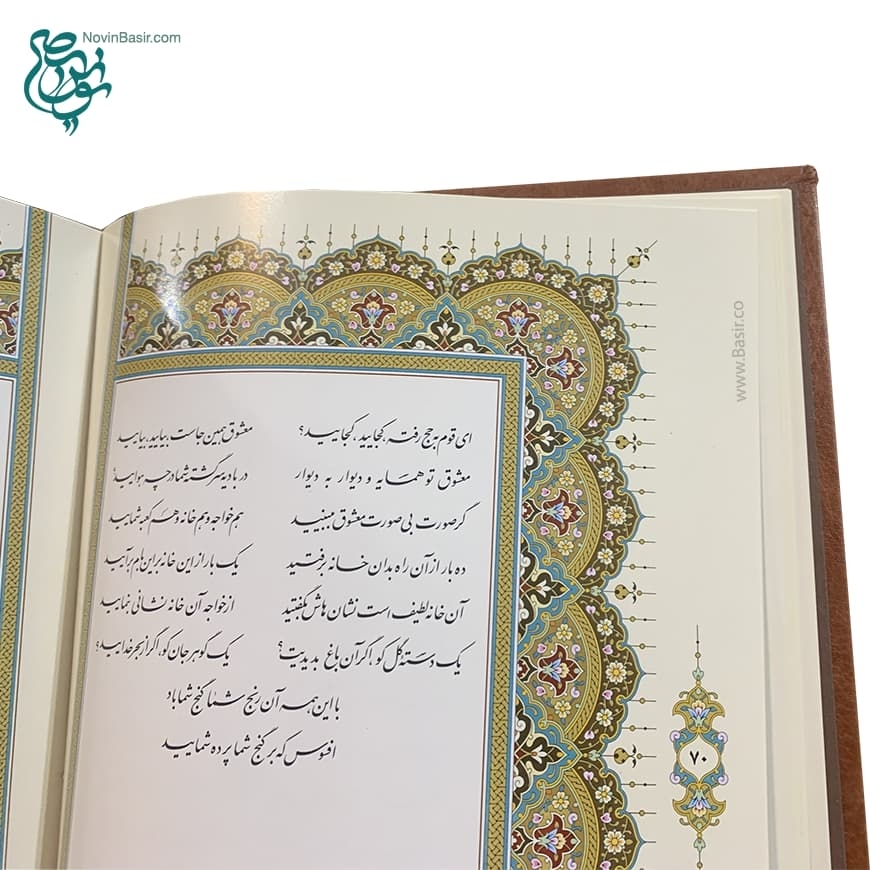 NovinBasir.com
ای قوم به حج رفته، کجایید، کجایید؟ معشوق همین جاست، بیایید، بیایید
معشوق تو همسایه و دیوار به دیوار در بادیه سرگشته شما در چه هوایید؟
گر صورت بی صورت معشوق ببینید هم خواجه و هم خانه و هم کعبه شمایید
ده بار از آن راه بدان خانه برفتید یک بار از این خانه بر این بام برآیید
آن خانه لطیف است نشان هاش بگفتید از خواجه آن خانه نشانی بنمایید
یک دسته گل کو، اگر آن باغ بدیدیت؟ یک گوهر جان کو، اگر از بحر خدایید؟
با این همه آن رنج شما گنج شما باد
افسوس که بر گنج شما پرده شمایید
۷۰
www.Basir.co